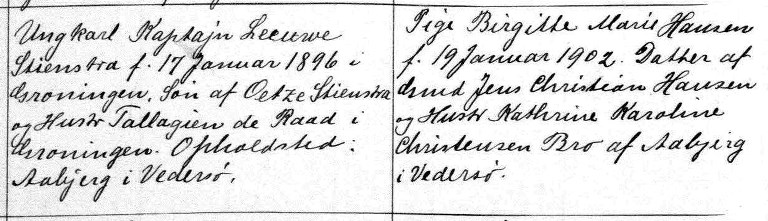 Ungkarl Kaptajn Leeuwe
Stienstra f. 17 Januar 1896 i
Groningen. Søn af Oetze Stienstra
og Hustr Tallagien de Raad i
Groningen. Opholdsted:
Aabjerg i Vedersø.
Pige Birgitte Marie Hansen
f. 19 Januar 1902. Datter af
Gmd Jens Christian Hansen
og Hustr Kathrine Karoline
Christensen Bro af Aabjerg
i Vedersø.